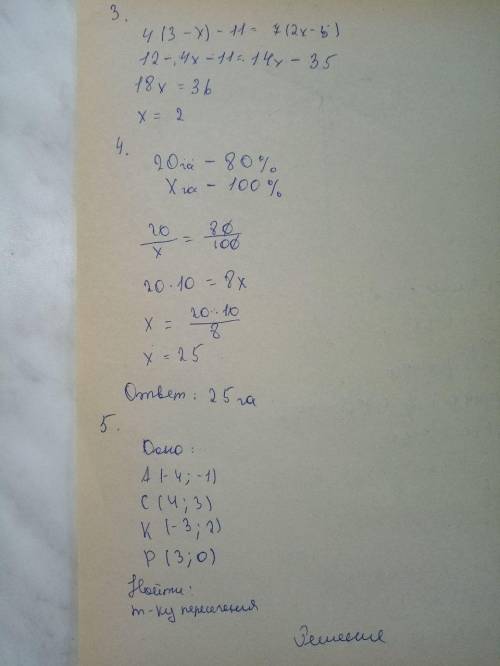 3.
4(3-x)-11= 7(2x-5)
12-4x-11=14x-35
18x = 36
x = 2
4.
20га - 80%
Xга - 100%
20/x = 80/100
20·10 = 8x
x = 20·10/8
x = 25
Ответ: 25га
5.
Дано:
A(-4;-1)
C(4;3)
K(-3;2)
P(3;0)
Найти:
т-ку пересечения
Решение